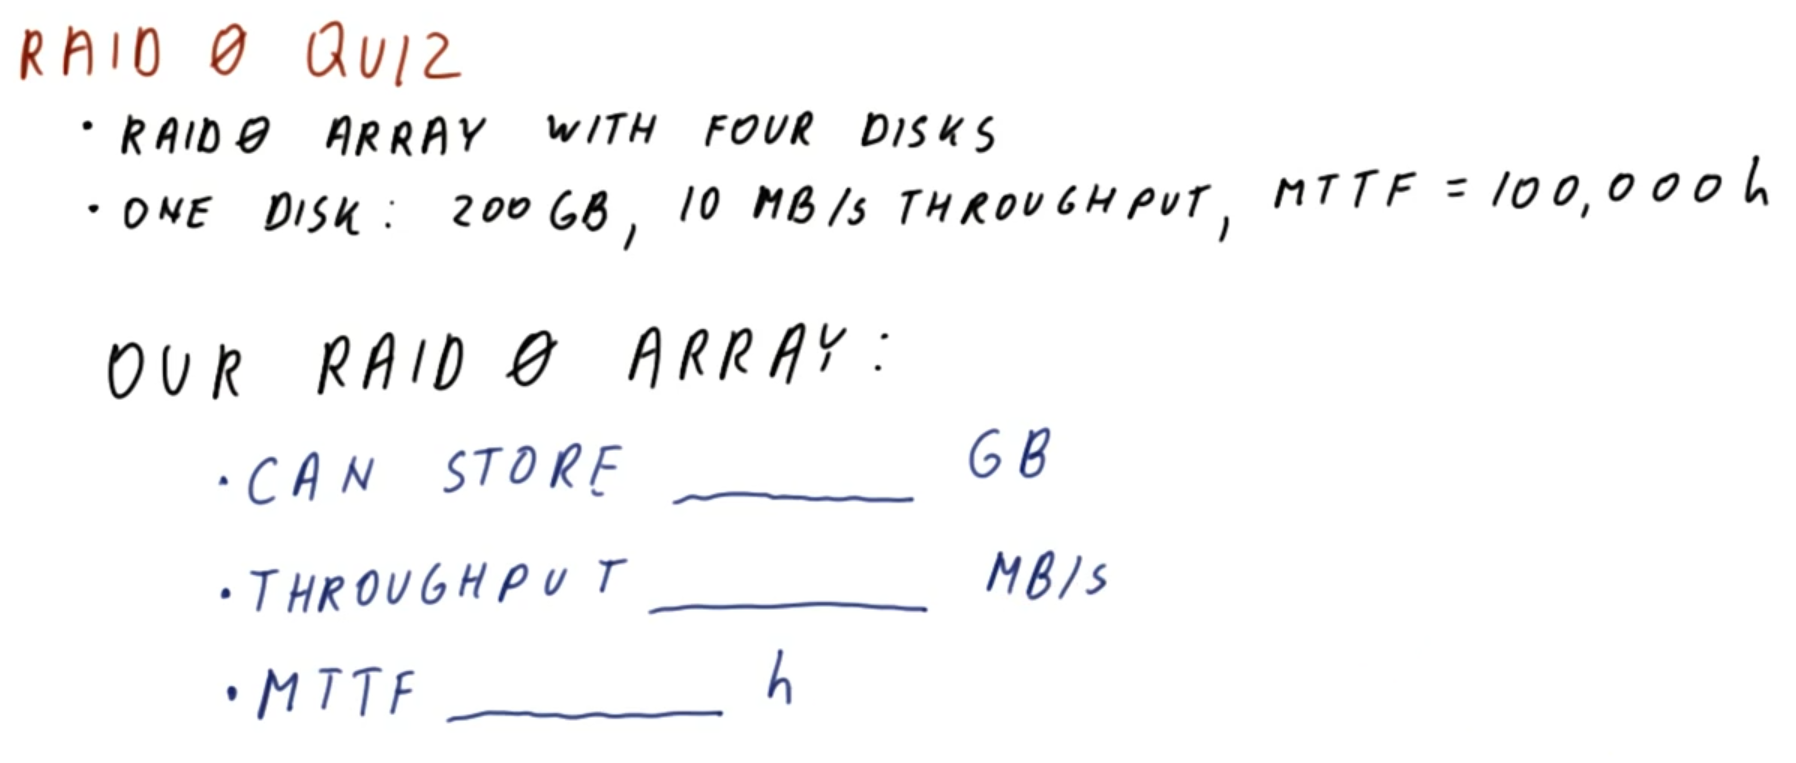 RAID 0 QUIZ
• RAID0 ARRAY WITH FOUR DISKS
• ONE DISK: 200 GB, 10 MB/s THROUGHPUT, MTTF = 100,000 h
OUR RAID 0 ARRAY:
• CAN STORE ______ GB
• THROUGHPUT ______ MB/s
• MTTF ______ h